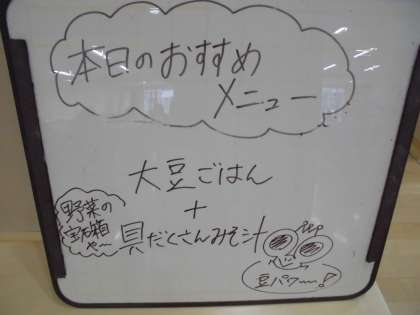 本日のおすすめ
メニュー
大豆ごはん
+
野菜の
宝石箱
や〜
具だくさんみそ汁
豆パワ〜!